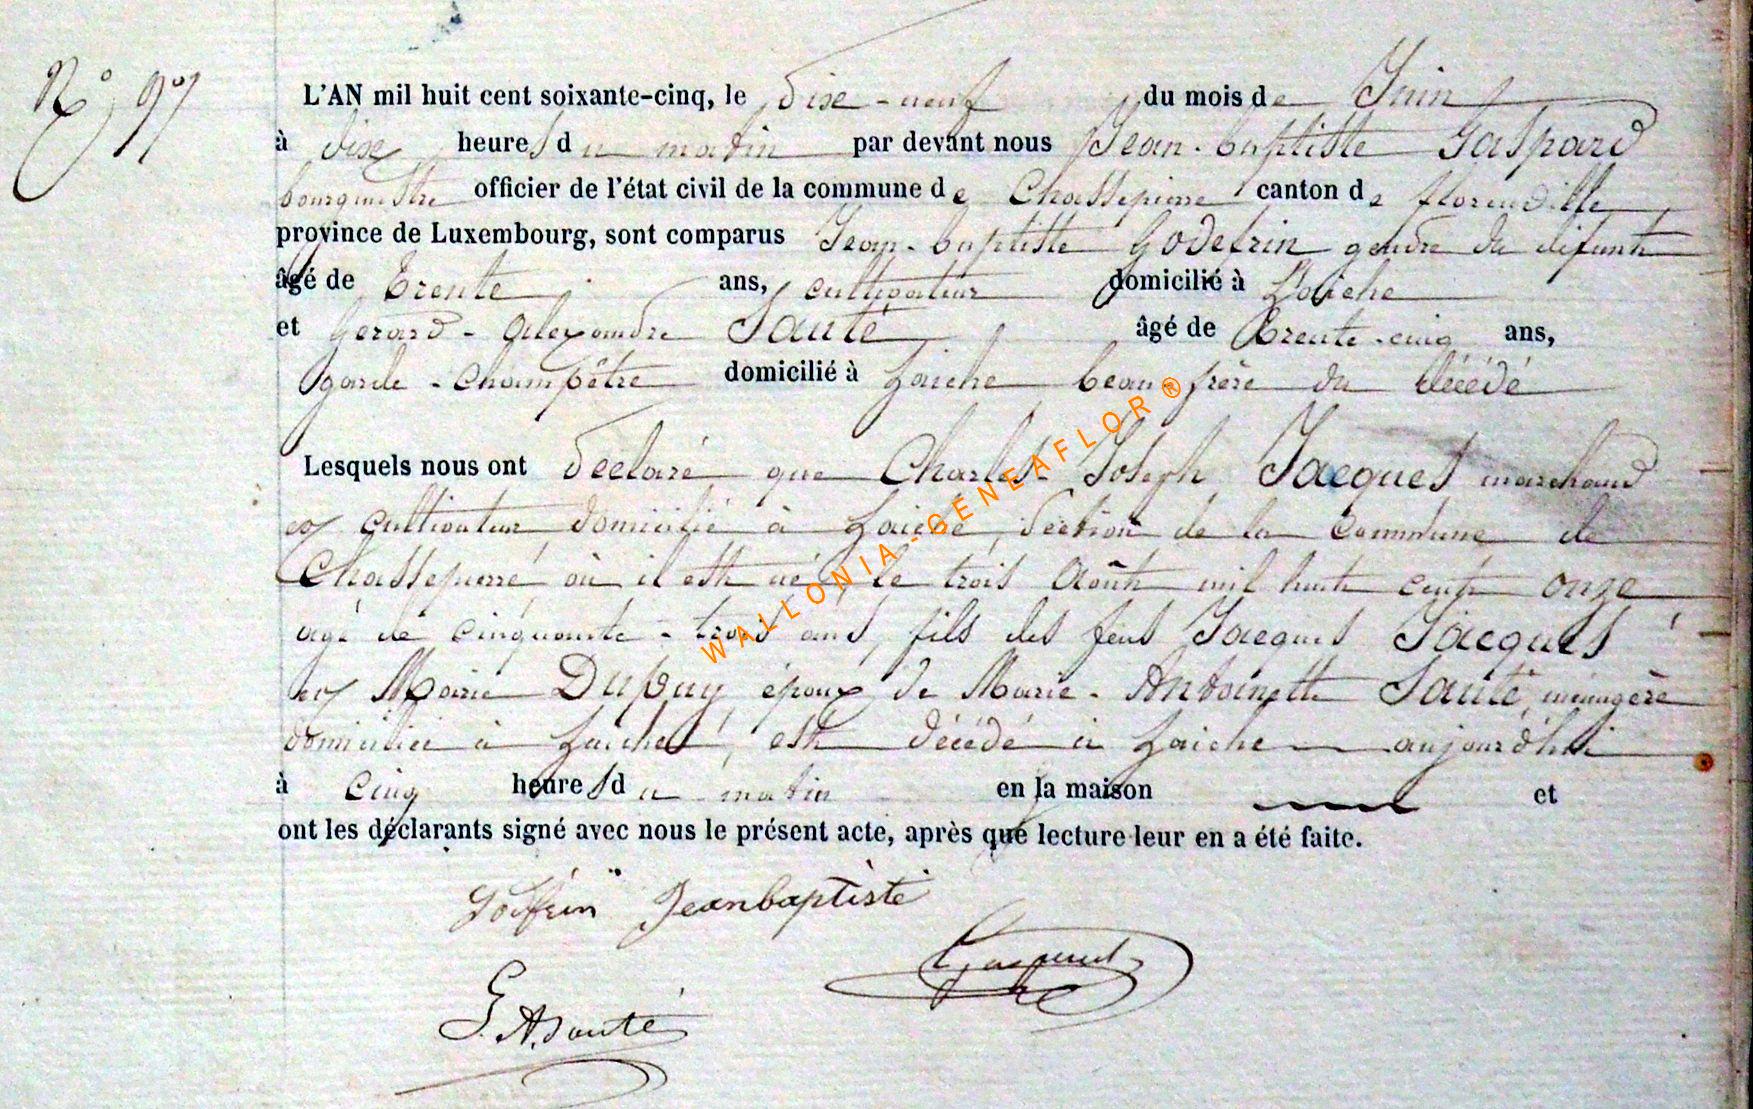 N°, 97
L'AN mil huit cent soixante-cinq, le dixe-neuf du mois de Juin
à dixe heures du matin par devant nous Jean-baptiste Gaspard
bourgmestre officier de l'état civil de la commune de Chassepierre canton de florenville
province de Luxembourg, sont comparus Jean-baptiste Godefrin gendre du défunt
âgé de trente ans, cultivateur domicilié à Laiche
et Gerard-Alexandre Sauté âgé de trente-cinq ans,
garde-champêtre domicilié à Laiche beau-frère du décédé
Lesquels nous ont declaré que Charles-Joseph Jacques marchand
et cultivateur domicilié à Laiche, Section de la commune de
Chassepierre où il est né le trois Août mil huit cent onze
agé de cinquante-trois ans, fils des feus Jacques Jacques
et Marie Dupuy, époux de Marie-Antoinette Sauté, ménagère
domiciliée à Laiche, est décédé à Laiche aujourd'hui
à cinq heures du matin en la maison et
ont les déclarants signé avec nous le présent acte, après que lecture leur en a été faite.
Jeanbaptiste
Gaspard
G. A. Sauté
WALLONIA-GENEAFLOR®